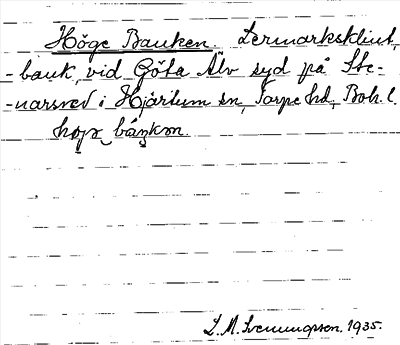 Höge Banken. Lermarksklint,
- bank, vid Göta Älv syd på Ste-
- narsröd i Hjärtum sn, Torpe hd, Boh. l.
høgə båŋkən.
L. M. Svenungsson. 1935.